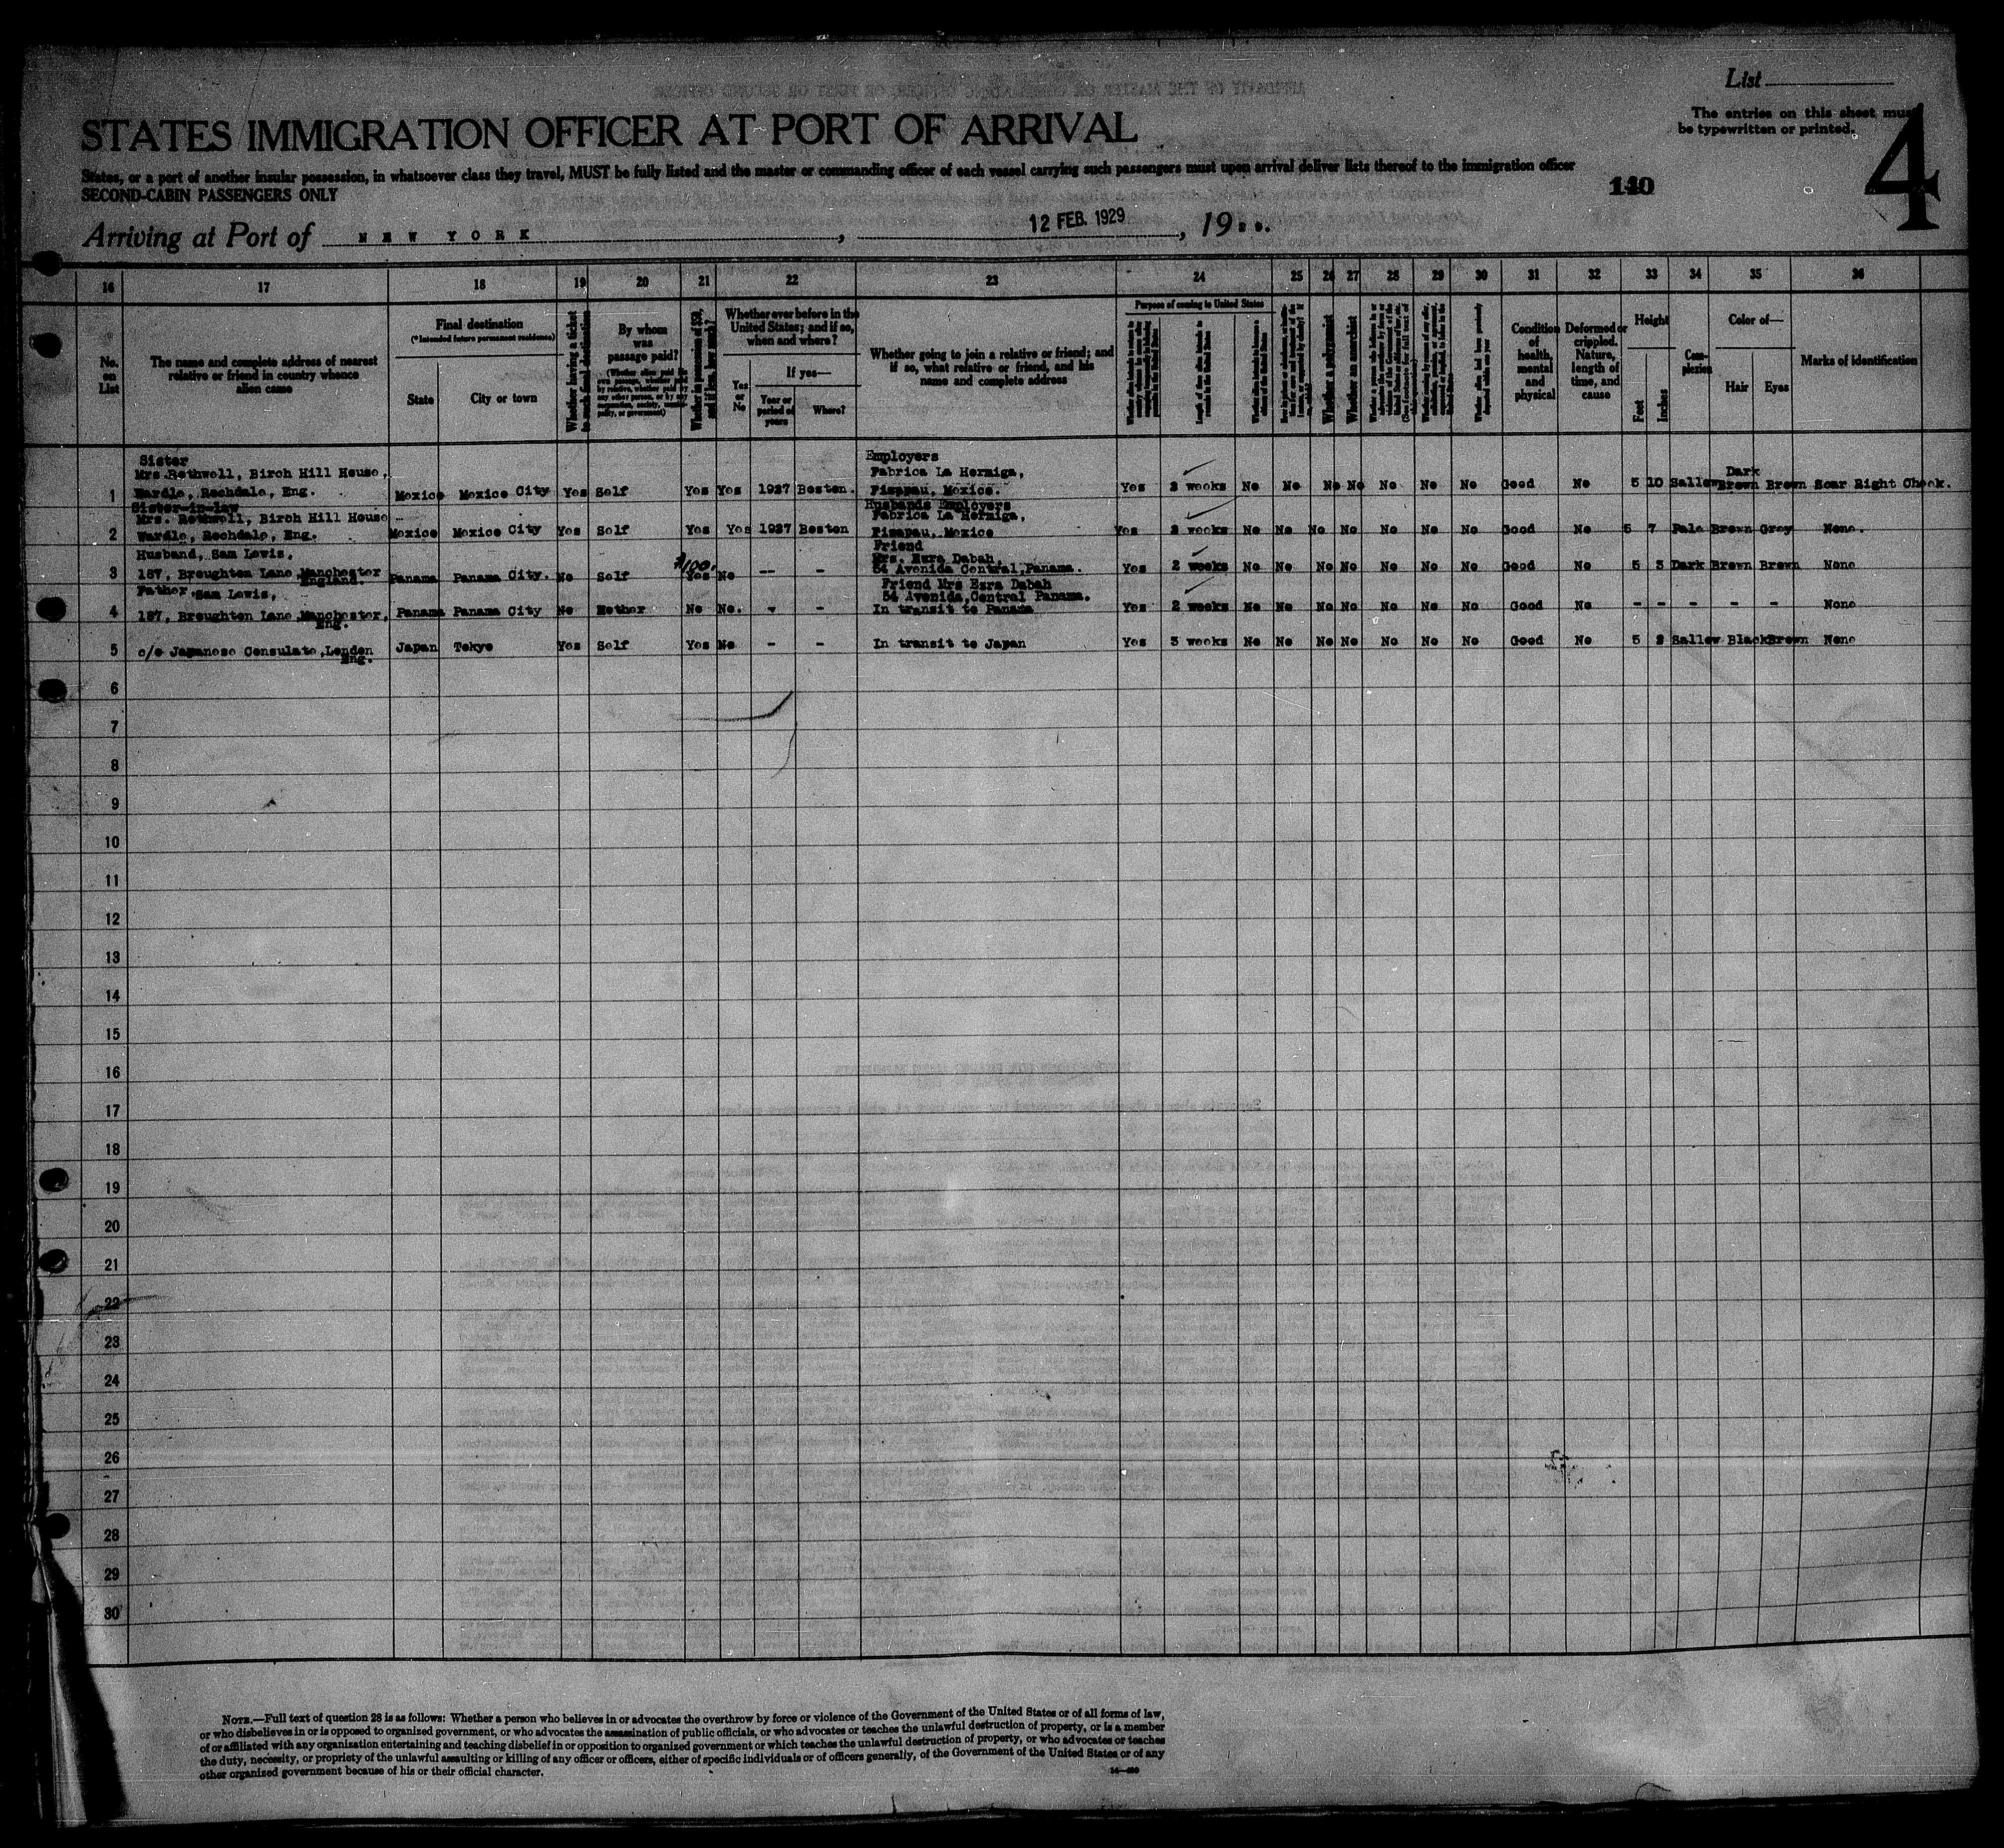 List
The entries on this sheet must
be typewritten or printed.
4
STATES IMMIGRATION OFFICER AT PORT OF ARRIVAL
States, or a port of another insular possession, in whatsoever class they travel, MUST be fully listed and the master or commanding officer of each vessel carrying such passengers must upon arrival deliver lists thereof to the immigration officer
SECOND-CABIN PASSENGERS ONLY
140
Arriving at Port of NEW YORK, 12 FEB. 1929, 19
16 17 18 19 20 21 22 23 24 25 26 27 28 29 30 31 32 33 34 35 36
No. on List
The name and complete address of nearest relative or friend in country whence alien came
Final destination
(*Intended future permanent residence)
State
City or town
Whether having a ticket to such final destination
By whom was passage paid?
Whether in possession of $50, and if less, how much?
Whether ever before in the United States; and if so, when and where?
Yes or No
If yes—
Year or period of years
Where?
Whether going to join a relative or friend; and if so, what relative or friend, and his name and complete address
Purpose of coming to United States
Whether a polygamist
Whether an anarchist
Condition of health, mental and physical
Deformed or crippled. Nature, length of time, and cause
Height
Feet
Inches
Complexion
Color of—
Hair
Eyes
Marks of identification
Sister
Mrs. Rothwell, Birch Hill House,
Employers
Fabrica La Hormiga,
Dark
1 Wardle, Rochdale, Eng. Mexico Mexico City Yes Self Yes Yes 1927 Boston. Mexico. Yes 2 weeks No No No No No No No Good No 5 10 Sallow Brown Brown Scar Right Cheek.
Sister-in-law
Mrs. Rothwell, Birch Hill House
Husbands Employers
Fabrica La Hormiga,
2 Wardle, Rochdale, Eng. Mexico Mexico City Yes Self Yes Yes 1927 Boston Mexico Yes 2 weeks No No No No No No No Good No 5 7 Pale Brown Grey None.
Husband, Sam Lewis,
Friend
Mrs. Ezra Dabah,
$100.
3 187, Broughton Lane, Manchester England. Panama Panama City. No Self Yes No — - 54 Avenida Central, Panama. Yes 2 weeks No No No No No No No Good No 5 3 Dark Brown Brown None
Father, Sam Lewis,
Friend Mrs Ezra Dabah
54 Avenida, Central Panama.
4 187, Broughton Lane, Manchester, Eng. Panama Panama City No Mother No No. - - In transit to Panama Yes 2 weeks No No No No No No No Good No - - - - - None
5 c/o Japanese Consulate, London Eng. Japan Tokyo Yes Self Yes No - - In transit to Japan Yes 3 weeks No No No No No No No Good No 5 2 Sallow Black Brown None
6
7
8
9
10
11
12
13
14
15
16
17
18
19
20
21
22
23
24
25
26
27
28
29
30
NOTE.—Full text of question 28 is as follows: Whether a person who believes in or advocates the overthrow by force or violence of the Government of the United States or of all forms of law,
or who disbelieves in or is opposed to organized government, or who advocates the assassination of public officials, or who advocates or teaches the unlawful destruction of property, or is a member
of or affiliated with any organization entertaining and teaching disbelief in or opposition to organized government or which teaches the unlawful destruction of property, or who advocates or teaches
the duty, necessity, or propriety of the unlawful assaulting or killing of any officer or officers, either of specific individuals or of officers generally, of the Government of the United States or of any
other organized government because of his or their official character.